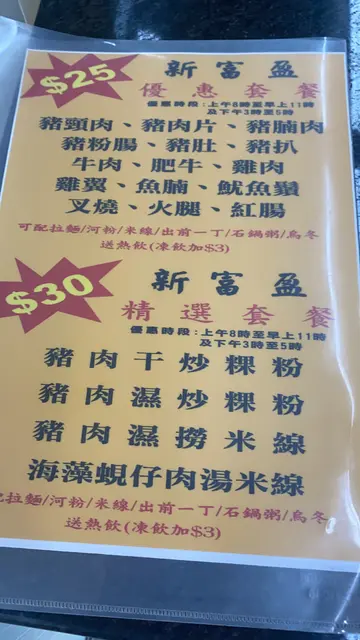 $25
新富盈
優惠套餐
優惠時段:上午8時至早上11時
及下午3時至5時
豬頸肉、豬肉片、豬腩肉
豬粉腸、豬肚、豬扒
牛肉、肥牛、雞肉
雞翼、魚腩、魷魚鬚
叉燒、火腿、紅腸
可配拉麵/河粉/米線/出前一丁/石鍋粥/烏冬
送熱飲(凍飲加$3)
$30
新富盈
精選套餐
優惠時段:上午8時至早上11時
及下午3時至5時
豬肉干炒粿粉
豬肉濕炒粿粉
豬肉濕撈米線
海藻蜆仔肉湯米線
配拉麵/河粉/米線/出前一丁/石鍋粥/烏冬
送熱飲(凍飲加$3)